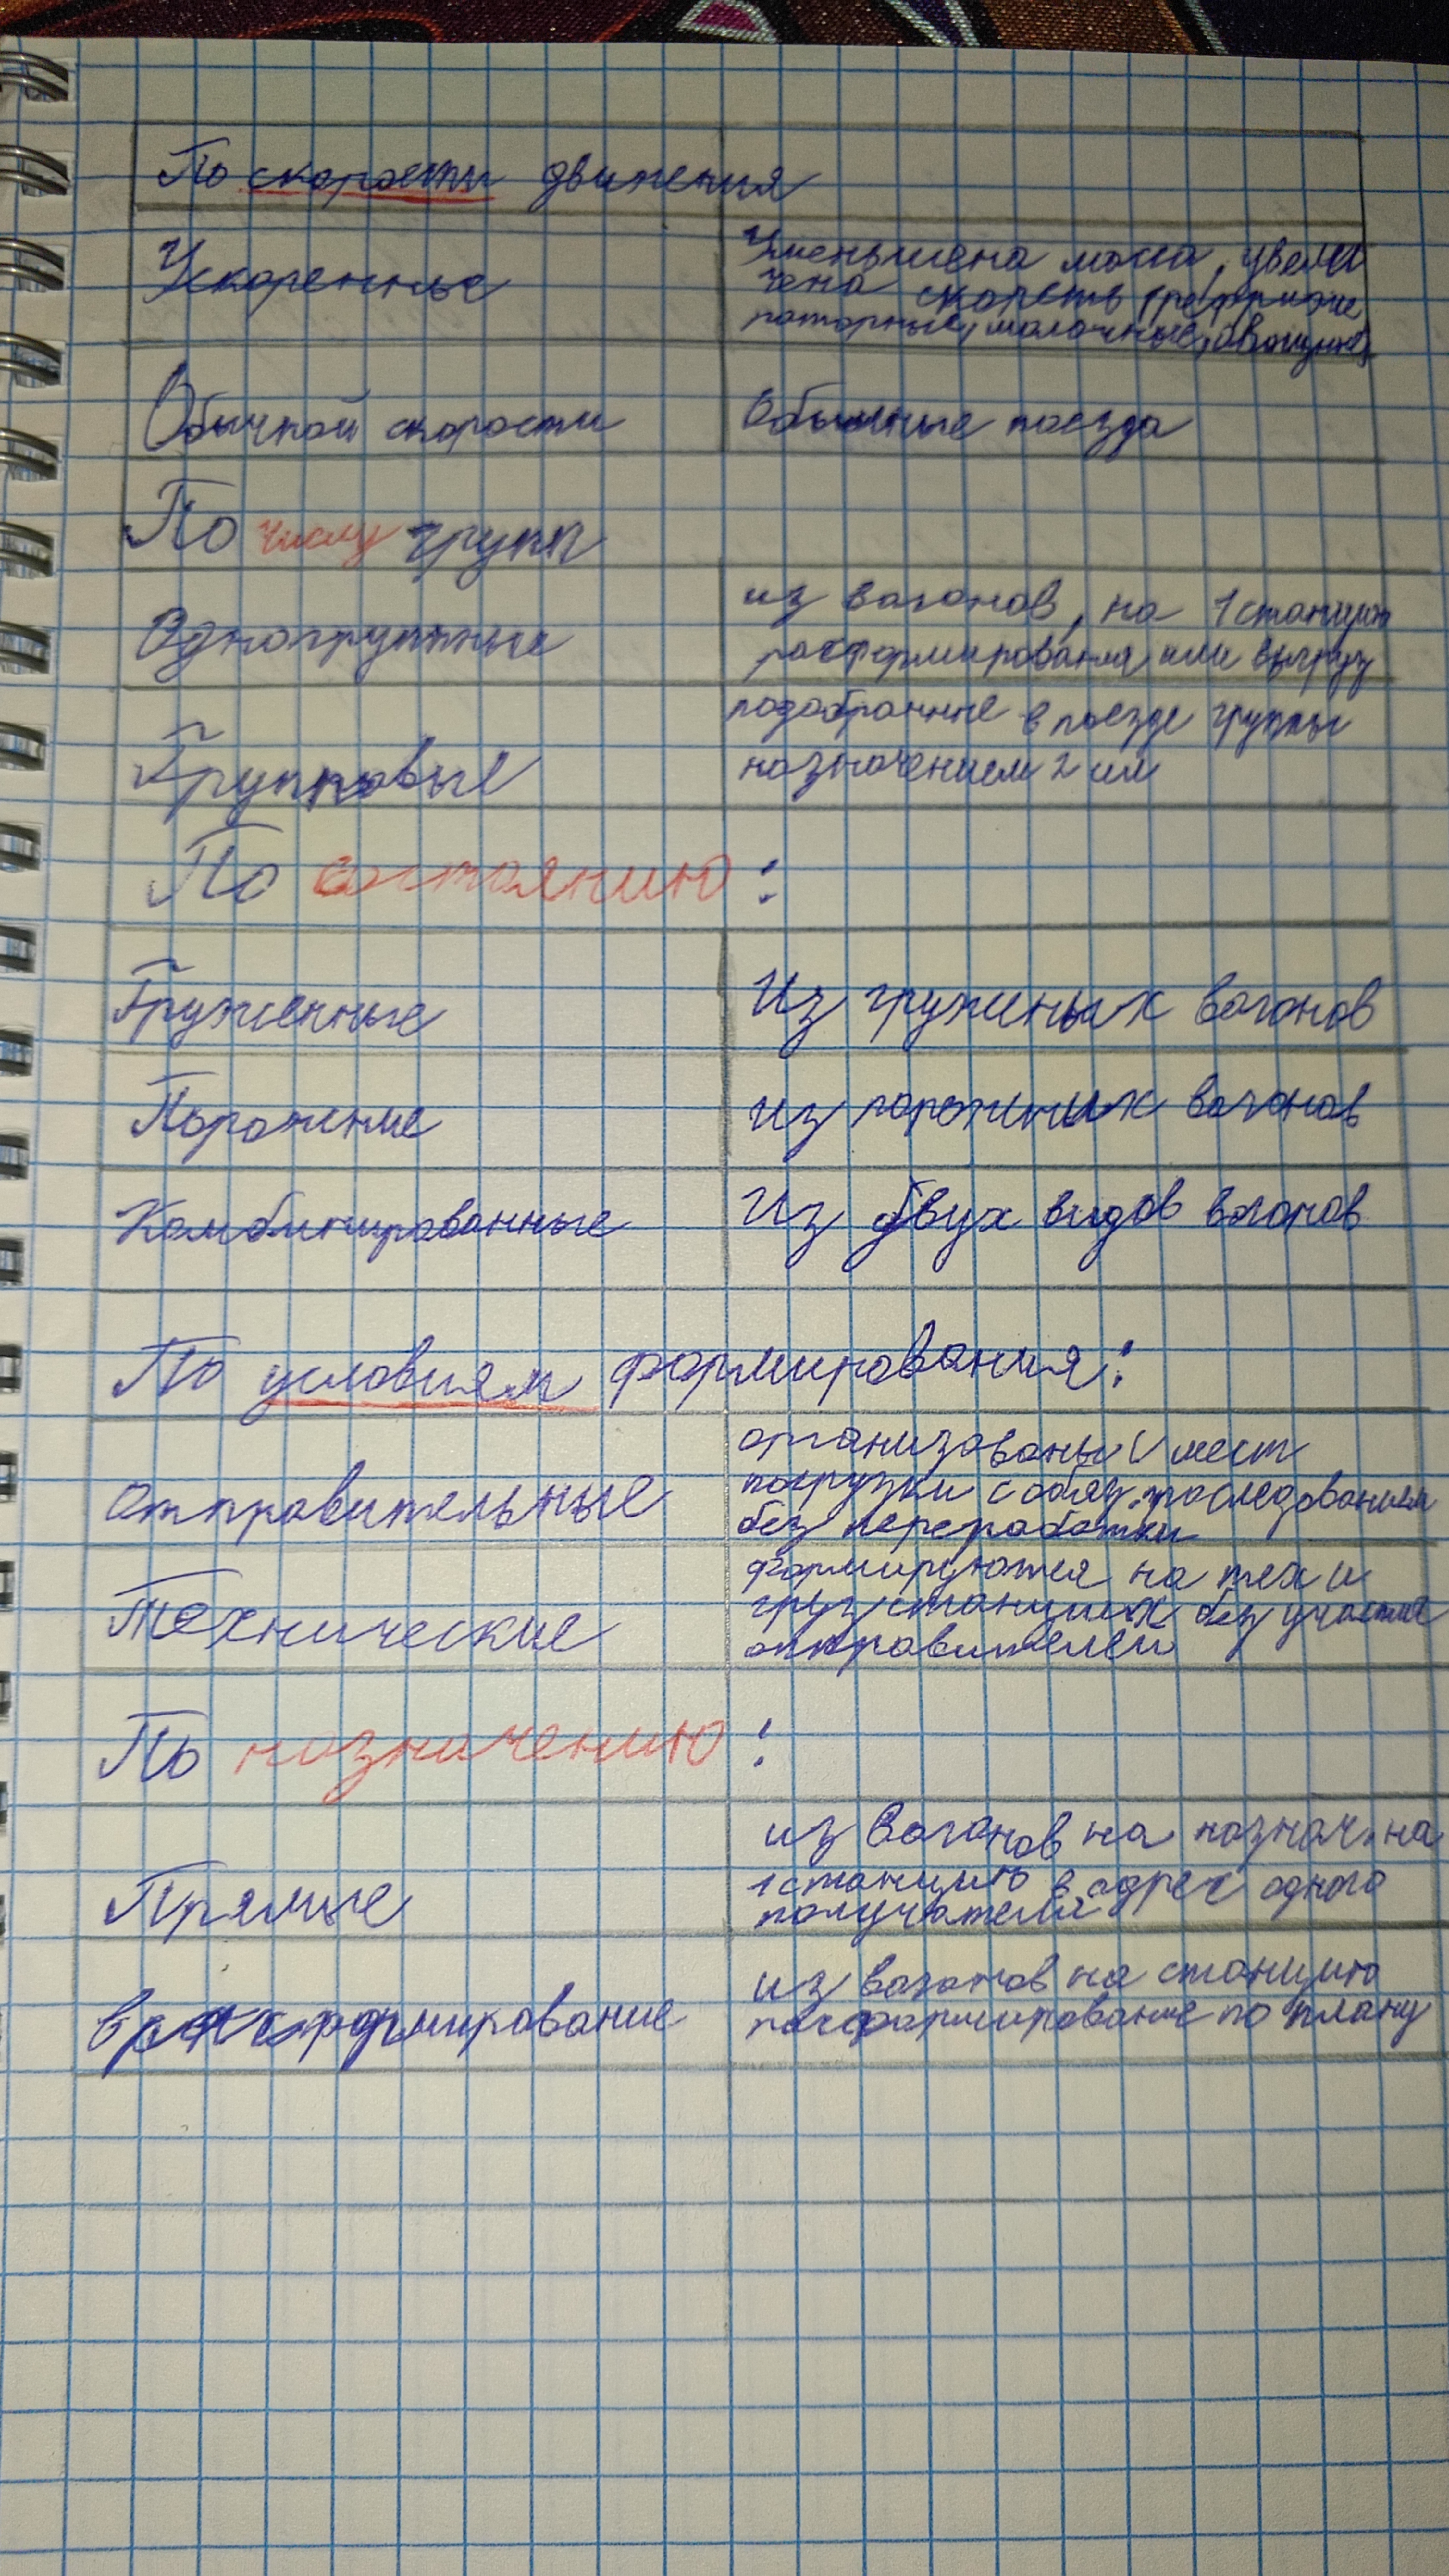 По скорости движения
Ускоренные
Уменьшена масса, увели
чена скорость (рефриже
раторные, молочные, овощные)
Обычной скорости
Обычные поезда
По числу групп
Одногруппные
из вагонов, на 1 станцию
расформирования или выгруз
Групповые
подобранные в поезде группы
назначением 2 или
По состоянию :
Груженные
Из груженых вагонов
Порожние
из порожних вагонов
Комбинированные
Из двух видов вагонов
По условиям формирования:
Отправительные
организованы с мест
погрузки с обяз. проследованием
без переработки
Технические
формируются на тех и
груз станциях без участия
отправителей
По назначению :
Прямые
из вагонов на назнач. на
1 станцию в адрес одного
получателя
В расформирование
из вагонов на станцию
расформирование по плану